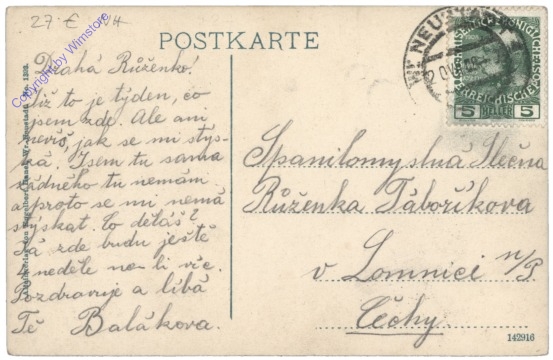 27.-€
POSTKARTE
Wr NEUSTADT
5 HELLER 5
Copyright by Wimstore
Drahá Růženko!
Již to je týden, co
jsem zde. Ale ani
nevíš, jak se mi stýs-
ká. Jsem tu sama
žádného tu nemám
a proto se mi nemá
stýskat. Co děláš?
Já zde budu ještě
neděle ne-li víc.
Pozdravuje a líbá
Tě Balákova.
Spanilomyslná Slečna
Růženka Táboříkova
v Lomnici n/P
Čechy.
142916